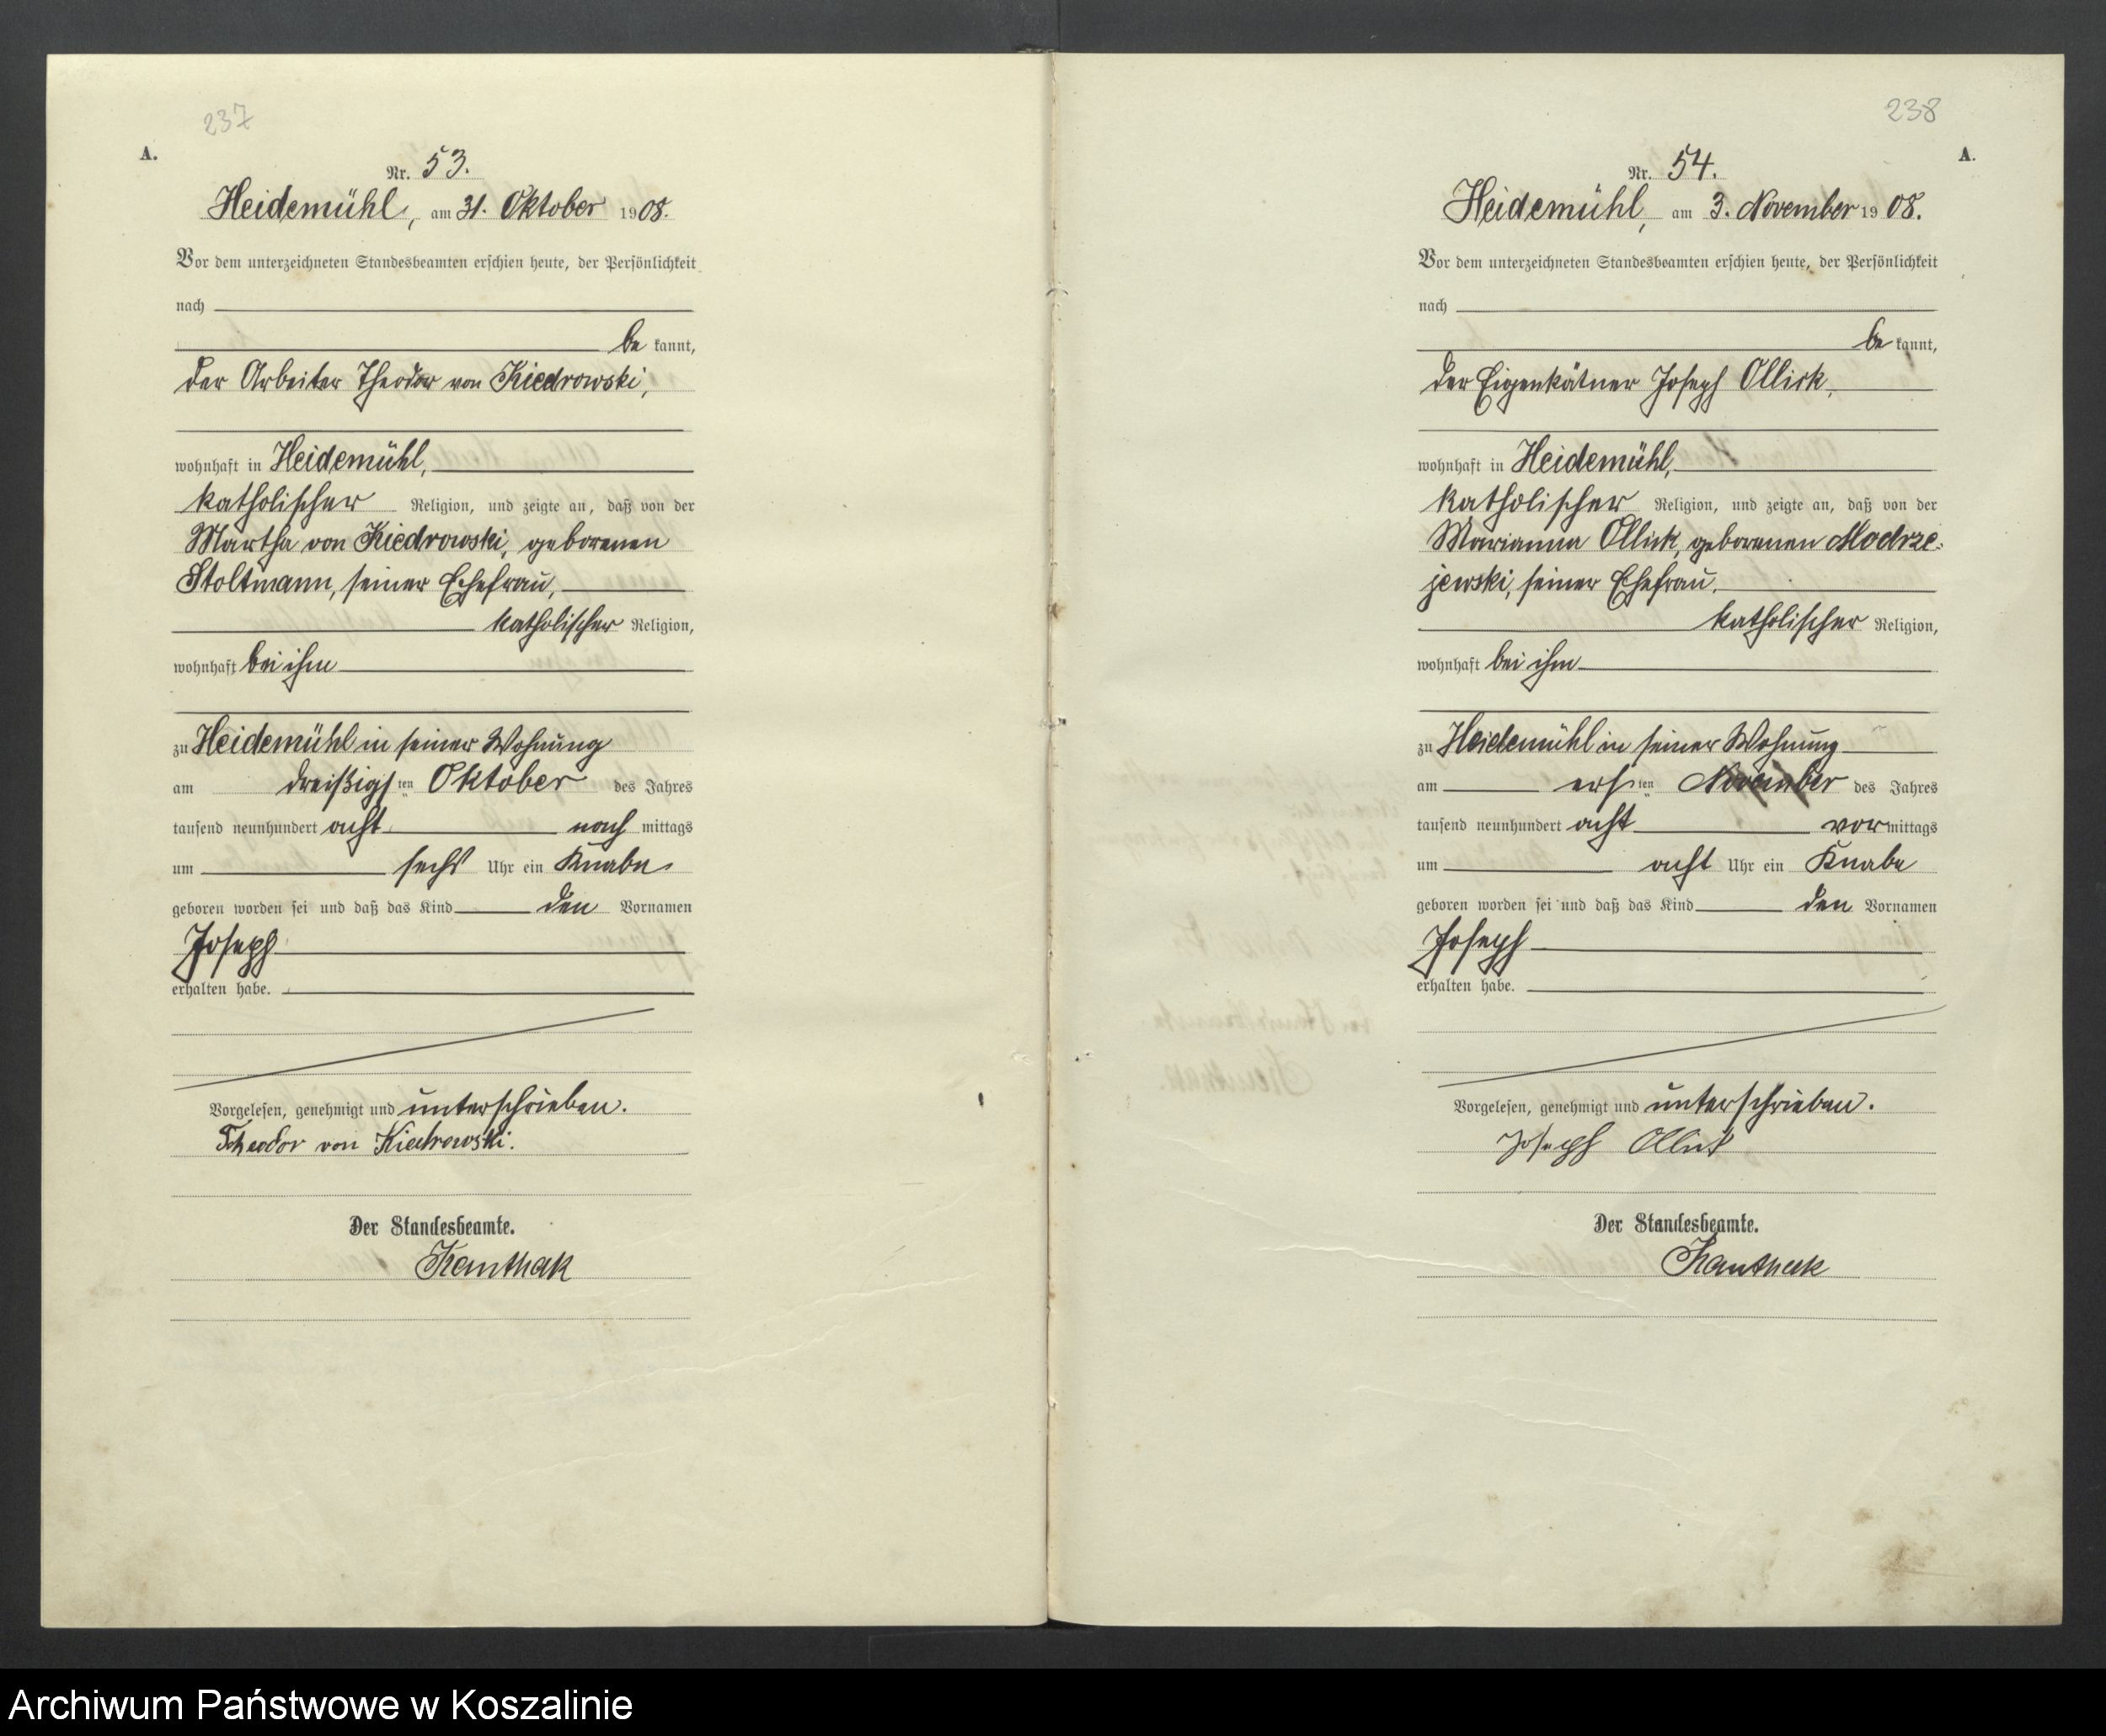 237
A.
Nr. 53.
Heidemühl, am 31. Oktober 1908.
Vor dem unterzeichneten Standesbeamten erschien heute, der Persönlichkeit
nach
be kannt,
der Arbeiter Theodor von Kiedrowski,
wohnhaft in Heidemühl,
katholischer Religion, und zeigte an, daß von der
Martha von Kiedrowski, geborenen
Stoltmann, seiner Ehefrau,
katholischer Religion,
wohnhaft bei ihm
zu Heidemühl in seiner Wohnung
am dreißigsten Oktober des Jahres
tausend neunhundert acht nach mittags
um sechs Uhr ein Knabe
geboren worden sei und daß das Kind den Vornamen
Joseph
erhalten habe.
Vorgelesen, genehmigt und unterschrieben.
Theodor von Kiedrowski.
Der Standesbeamte.
Kanthak
238
A.
Nr. 54.
Heidemühl, am 3. November 1908.
Vor dem unterzeichneten Standesbeamten erschien heute, der Persönlichkeit
nach
be kannt,
der Eigenkätner Joseph Ollick,
wohnhaft in Heidemühl,
katholischer Religion, und zeigte an, daß von der
Marianna Ollick, geborenen Modrze-
jewski, seiner Ehefrau,
katholischer Religion,
wohnhaft bei ihm
zu Heidemühl in seiner Wohnung
am ersten November des Jahres
tausend neunhundert acht vormittags
um acht Uhr ein Knabe
geboren worden sei und daß das Kind den Vornamen
Joseph
erhalten habe.
Vorgelesen, genehmigt und unterschrieben.
Joseph Ollick
Der Standesbeamte.
Kanthak
Archiwum Państwowe w Koszalinie